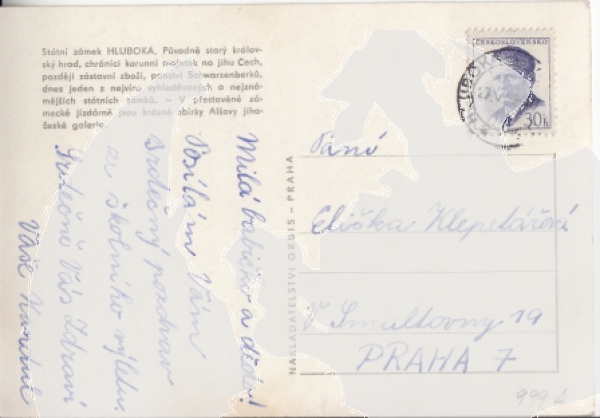 Státní zámek HLUBOKA. Původně starý králov-
ský hrad, chránící korunní majetek na jihu Čech,
později zástavní zboží, panství Schwarzenberků,
dnes jeden z nejvíce vyhledávaných a nejzná-
mějších státních zámků. — V přestavěné zá-
mecké jízdárně jsou krásné sbírky Alšovy jiho-
české galerie.
Milá babičko a dědo!
Posílám Vám
srdečný pozdrav
ze školního výletu.
Srdečně Vás zdraví
Vaše
NAKLADATELSTVÍ ORBIS – PRAHA
ČESKOSLOVENSKO
30h
HLUBOKÁ
Paní
Eliška Klepetářová
V Smaltovny 19
PRAHA 7
999 A